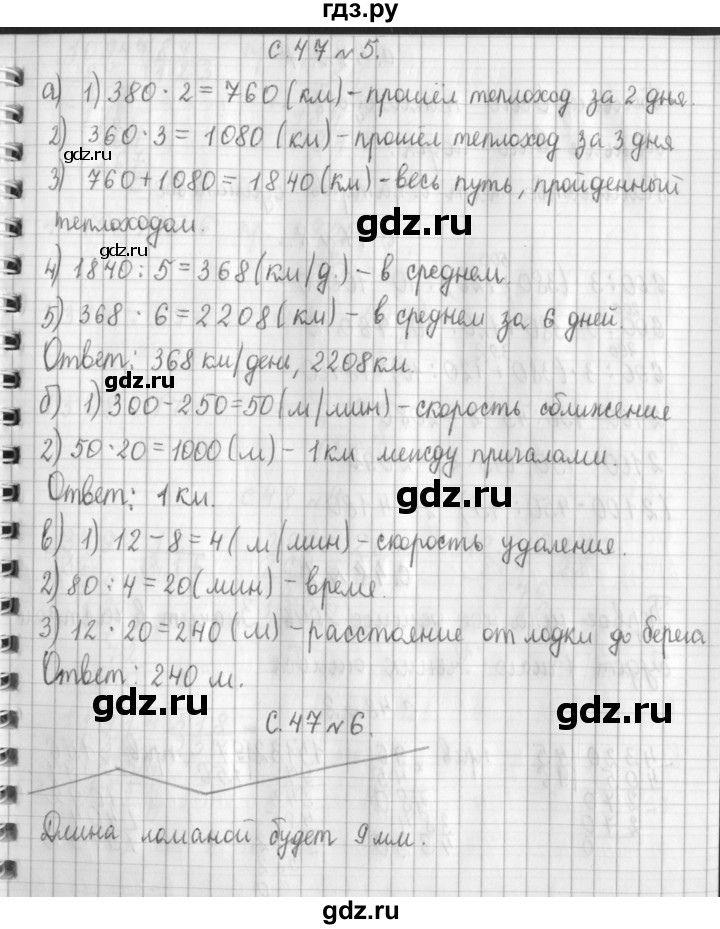 гдз.ру
с. 47 № 5.
а) 1) 380 · 2 = 760 (км) – прошёл теплоход за 2 дня.
2) 360 · 3 = 1080 (км) – прошёл теплоход за 3 дня
gdz.ru
3) 760 + 1080 = 1840 (км) – весь путь, пройденный
теплоходом.
gdz.ru
gdz.ru
4) 1840 : 5 = 368 (км/д.) – в среднем.
5) 368 · 6 = 2208 (км) – в среднем за 6 дней.
Ответ: 368 км/день, 2208 км.
gdz.ru
б) 1) 300 – 250 = 50 (м/мин) – скорость сближения
2) 50 · 20 = 1000 (м) – 1 км между причалами.
Ответ: 1 км.
gdz.ru
gdz.ru
в) 1) 12 – 8 = 4 ( м/мин) – скорость удаления.
2) 80 : 4 = 20 (мин) – време.
3) 12 · 20 = 240 (м) – расстояние от лодки до берега
Ответ: 240 м.
gdz.ru
с. 47 № 6.
gdz.ru
Длина ломаной будет 9 мм.
gdz.ru
gdz.ru